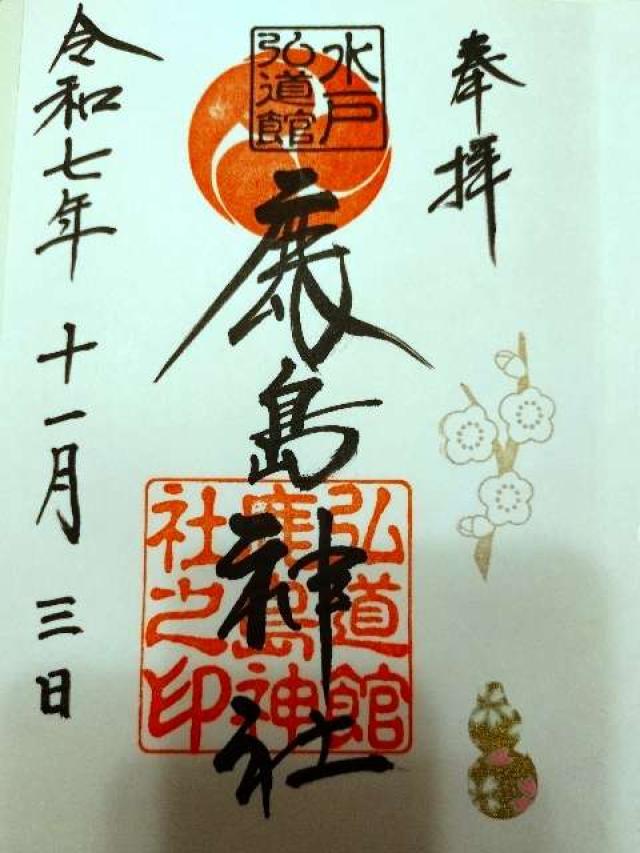 奉拝
水戸
弘道館
鹿島神社
弘道館
鹿島神
社之印
令和七年 十一月 三日